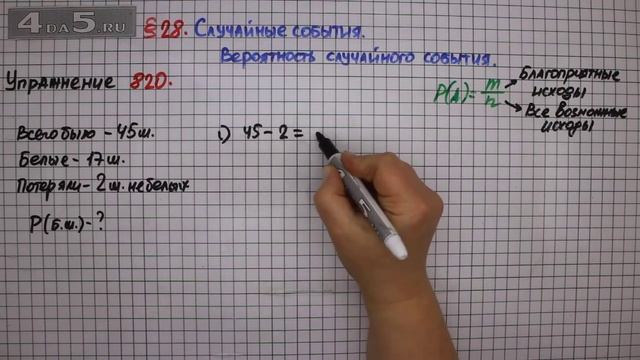 4DA5.RU
§28. Случайные события.
Вероятность случайного события.
Упражнение 820.
P(A)=m/n
Благоприятные
исходы
Все возможные
исходы
Всего было - 45 ш.
Белые - 17 ш.
Потеряли - 2 ш. не белых
P(б.ш.) - ?
1) 45 - 2 =